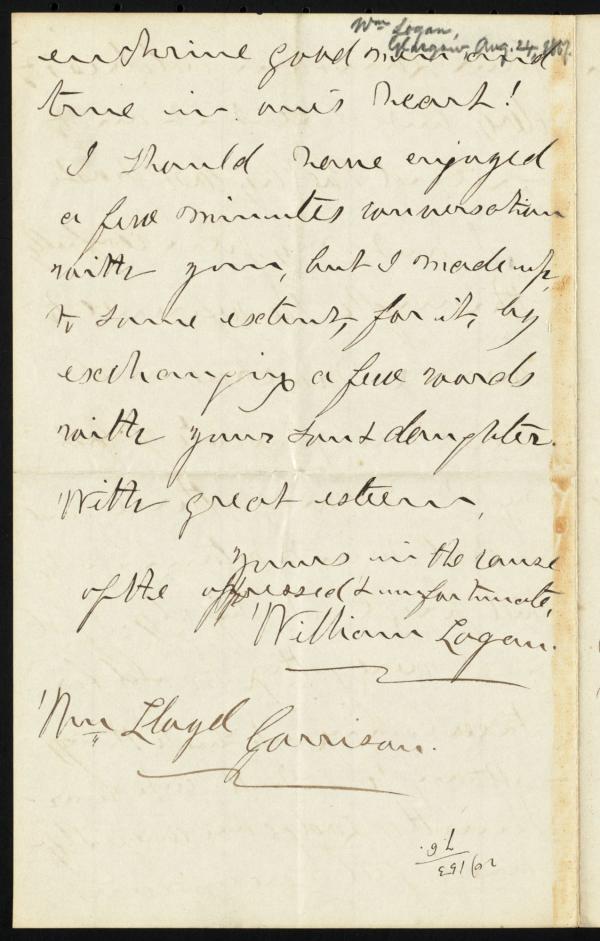 Wm Logan,
Glasgow, Aug. 24, 1867.
enshrine good men and
true in one's heart!
I should have enjoyed
a few minutes conversation
with you, but I made up,
to some extent, for it, by
exchanging a few words
with your son & daughter.
With great esteem,
yours in the cause
of the oppressed & unfortunate,
William Logan.
Wm Lloyd Garrison.
20)153
7 6.